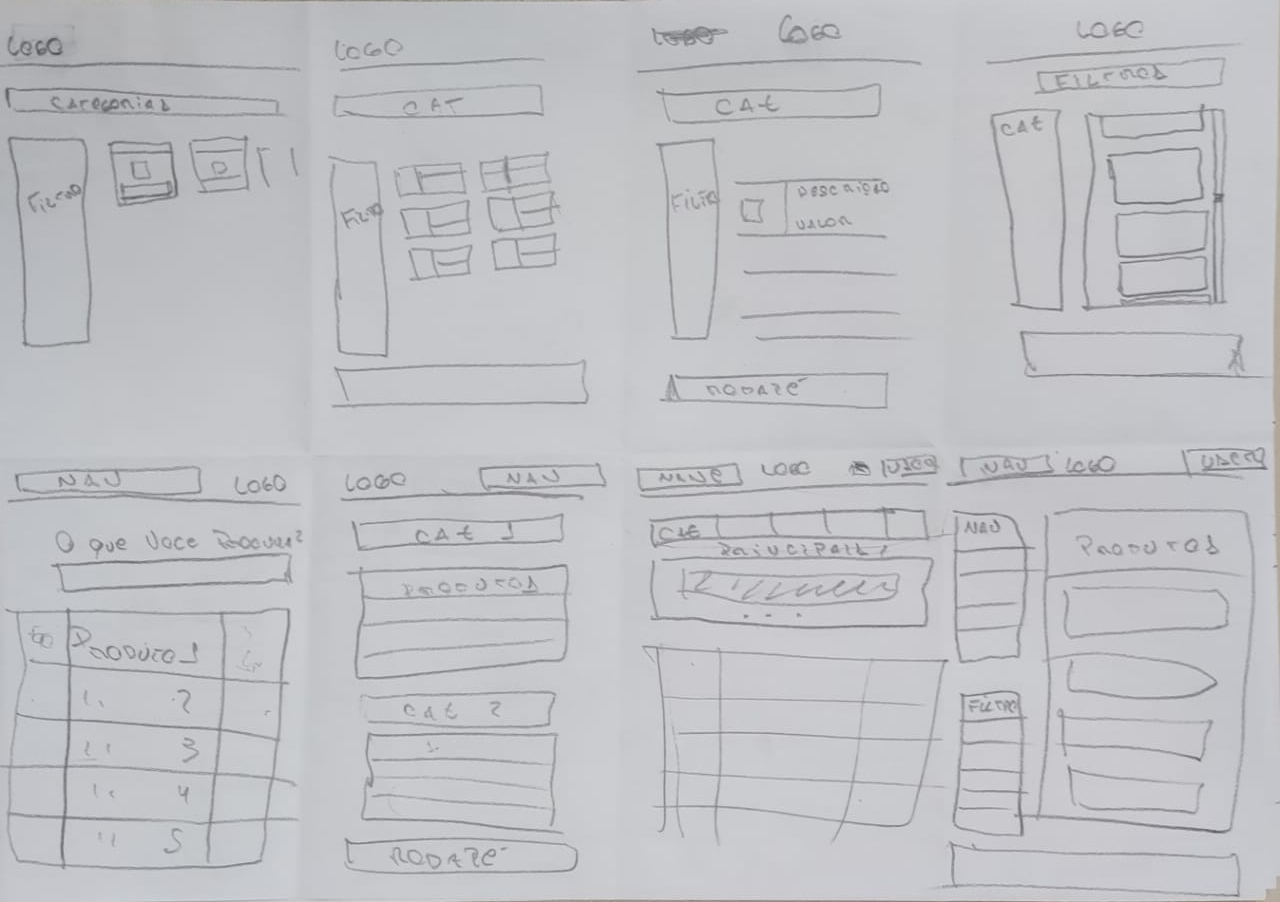 LOGO
CATEGORIAS
FILTRO
LOGO
CAT
FILTRO
LOGO
CAT
FILTRO
DESCRIÇÃO
VALOR
RODAPÉ
LOGO
FILTROS
CAT
NAV
LOGO
O que Voce PROCURA?
PRODUTO 1
" 2
" 3
" 4
" 5
LOGO
NAV
CAT 1
PRODUTOS
CAT 2
RODAPÉ
LOGO
CAT
PRINCIPAIS
NAV
LOGO
NAV
PRODUTOS
FILTRO